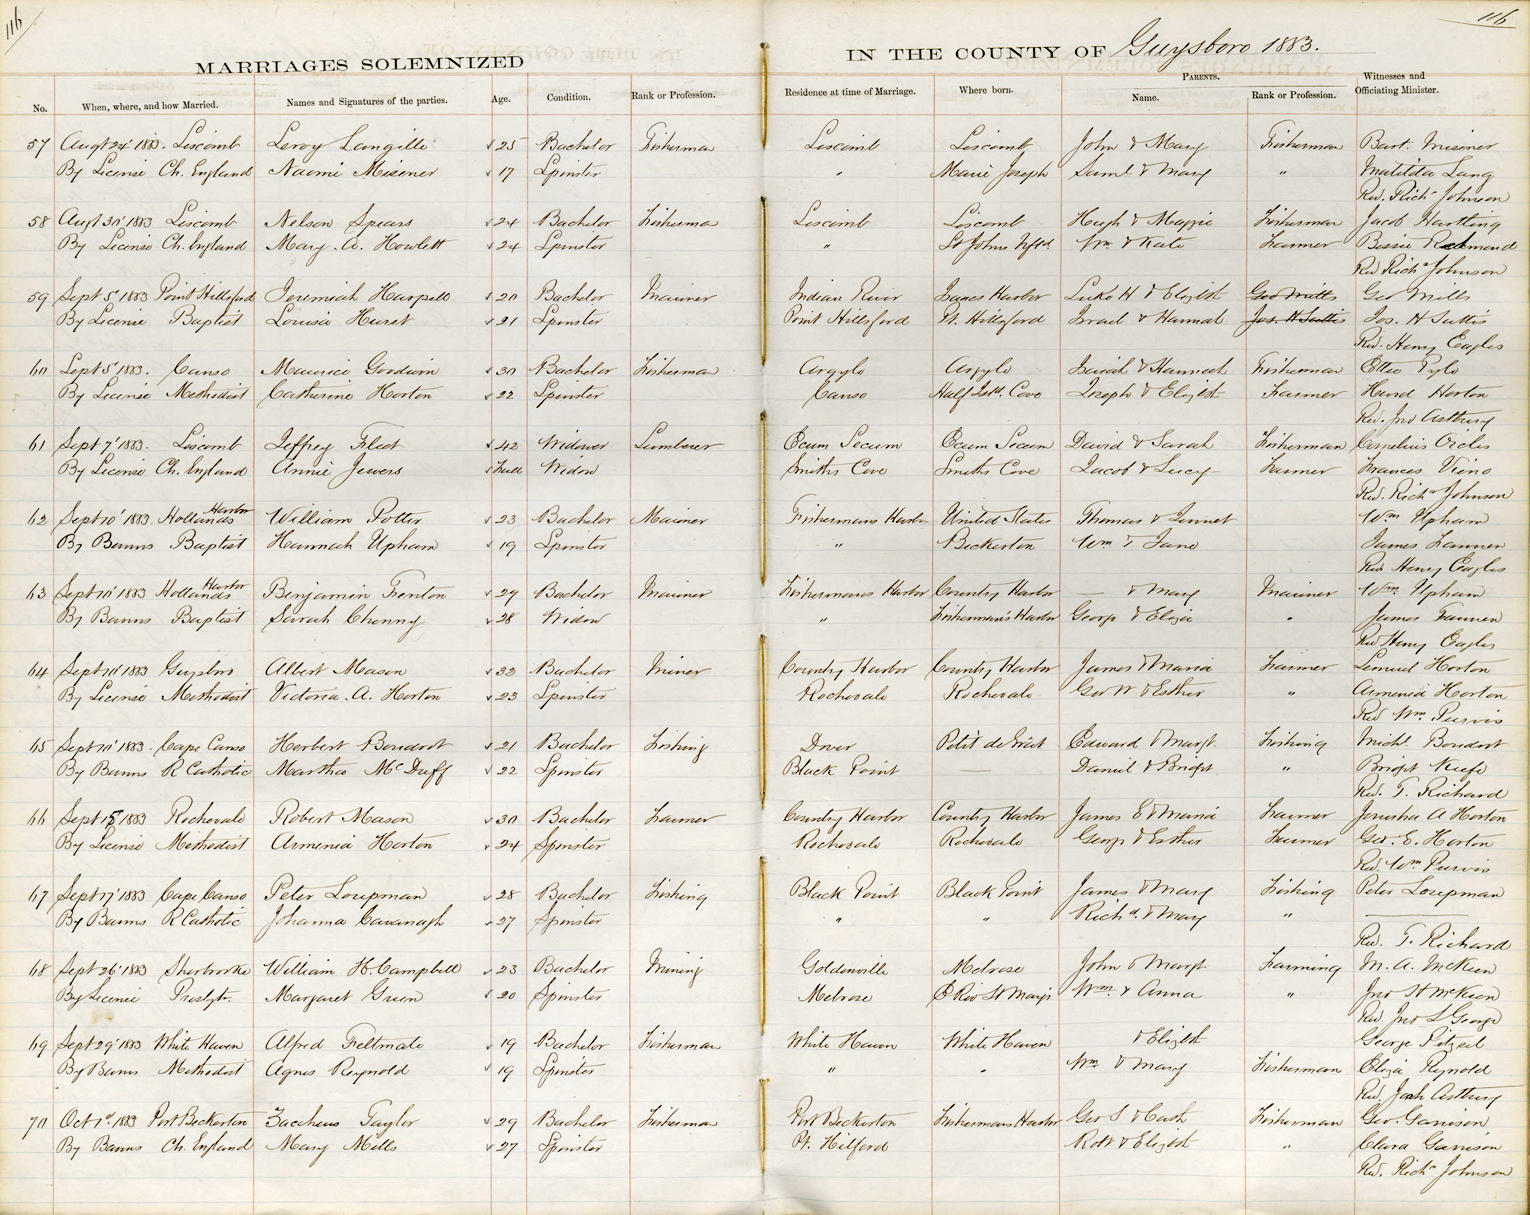 116
116
MARRIAGES SOLEMNIZED IN THE COUNTY OF Guysboro 1883.
No. When, where, and how Married. Names and Signatures of the parties. Age. Condition. Rank or Profession. Residence at time of Marriage. Where born. PARENTS. Name. Rank or Profession. Witnesses and Officiating Minister.
57 Augt 24' 1883. Liscomb Leroy Langille 25 Bachelor Fisherman Liscomb Liscomb John & Mary Fisherman Bart. Misener
By License Ch. England Naomi Misener 17 Spinster " Marie Joseph Saml & Mary " Matilda Lang
Rev. Richd Johnson
58 Augt 30' 1883 Liscomb Nelson Spears 24 Bachelor Fisherma Liscomb Liscomb Hugh & Maggie Fisherman Jacob Hartling
By License Ch. England Mary. A. Howlett 24 Spinster " St Johns Nfld. Wm & Kate Farmer Bessie Redmond
Rev Richd Johnson
59 Sept 5' 1883 Point Hillsford Jeremiah Harpell 20 Bachelor Mariner Indian River Isaacs Harbor Luke H & Elizbth Geo Mills Geo Mills
By License Baptist Louisa Hurst 21 Spinster Point Hillsford Pt. Hillsford Israel & Hannah Jos. H Suttis Jos. H Suttis
Rev. Henry Eagles
60 Sept 5' 1883. Canso Maurice Goodwin 30 Bachelor Fisherman Argyle Argyle Isaiah & Hannah Fisherman Pyle
By License Methodist Catherine Horton 22 Spinster Canso Half Isld. Cove Joseph & Elizbth Farmer Hurd Horton
Rev. Jno Astbury
61 Sept 7' 1883. Liscomb Jeffrey Fleet 42 Widower Lumberer Ecum Secum Ecum Secum David & Sarah Fisherman Cornelius
By License Ch. England Annie Jewers full Widow Smiths Cove Smiths Cove Jacob & Lucy Farmer Frances
Rev. Richd Johnson
62 Sept 10' 1883. Hollands Harbor William Potter 23 Bachelor Mariner Fishermans Harbr United States Thomas & Jennet Wm Upham
By Banns Baptist Hannah Upham 19 Spinster " Beckerton Wm & Jane James Fanner
Rev Henry Eagles
63 Sept 10' 1883 Hollands Harbor Benjamin Fenton 29 Bachelor Mariner Fishermans Harbor Country Harbor — & Mary Mariner Wm Upham
By Banns Baptist Sarah Chenny 28 Widow " Fisherman's Harbor George & Eliza " James Fannen
Rev Henry Eagles
64 Sept 10' 1883 Guysboro Albert Mason 32 Bachelor Miner Country Harbor Country Harbor James & Maria Farmer Lemuel Horton
By License Methodist Victoria. A. Horton 23 Spinster Rochevale Rochevale Geo W & Esther " Armenia Horton
Rev Wm. Purvis
65 Sept 10' 1883. Cape Canso Herbert Boudrot 21 Bachelor Fishing Dover Petit de Grat Edward & Margt. Fishing Michl. Boudrot
By Banns R Catholic Martha Mc Duff 22 Spinster Black Point — Daniel & Bridgt " Bridgt Keefe
Rev. T. Richard
66 Sept 15 1883 Rochevale Robert Mason 30 Bachelor Farmer Country Harbor Country Harbor James E & Maria Farmer Jerusha A Horton
By License Methodist Armenia Horton 24 Spinster Rochevale Rochevale George & Esther Farmer Geo. E. Horton
Rev. Wm Purvis
67 Sept 17' 1883 Cape Canso Peter Loupman 28 Bachelor Fishing Black Point Black Point James & Mary Fishing Peter Loupman
By Banns R Catholic Johanna Cavanagh 27 Spinster " " Richd. & Mary "
Rev. T. Richard
68 Sept 26' 1883 Sherbrooke William H. Campbell 23 Bachelor Mining Goldenville Melrose John & Margt. Farming M. A. McKeen
By License Presbytr. Margaret Green 20 Spinster Melrose E Riv St Marys Wm. & Anna " Jno St McKeen
Rev Jno L George
69 Sept 29' 1883 White Haven Alfred Feltmate 19 Bachelor Fisherman White Haven White Haven & Elizbth George
By Banns Methodist Agnes Reynold 19 Spinster " " Wm & Mary Fisherman Eliza Reynold
Rev. Astbury
70 Oct 1st 1883 Port Beckerton Zaccheus Taylor 29 Bachelor Fisherman Port Beckerton Fishermans Harbor Geo S & Cath Fisherman Geo. Garrison
By Banns Ch. England Mary Mills 27 Spinster Pt. Hilford Robt & Elizbth " Clara Garrison
Rev. Richd Johnson